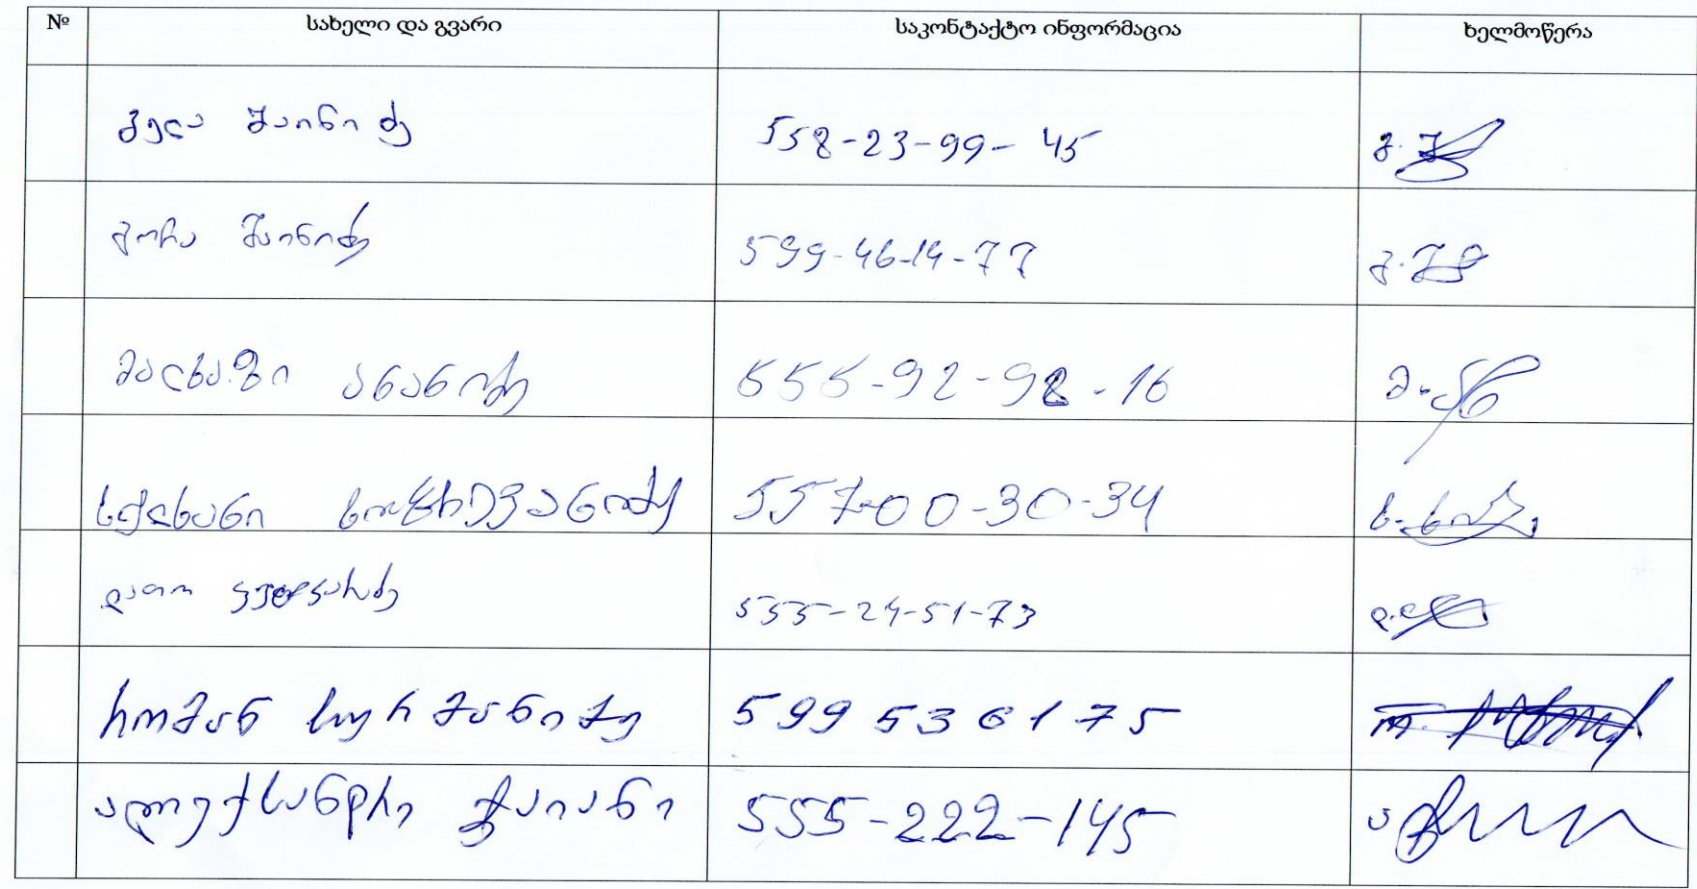 № სახელი და გვარი საკონტაქტო ინფორმაცია ხელმოწერა
გელა შაინიძე 558-23-99-45 გ.შ
გოჩა შაინიძე 599-46-14-77 გ.შ
მალხაზი ანანიძე 555-92-98-16 მ.ან
სულხანი 557-00-30-34
დათო 555-24-51-73
რომან სურმანიძე 599 536175
ალექსანდრე ჭაიანი 555-222-145